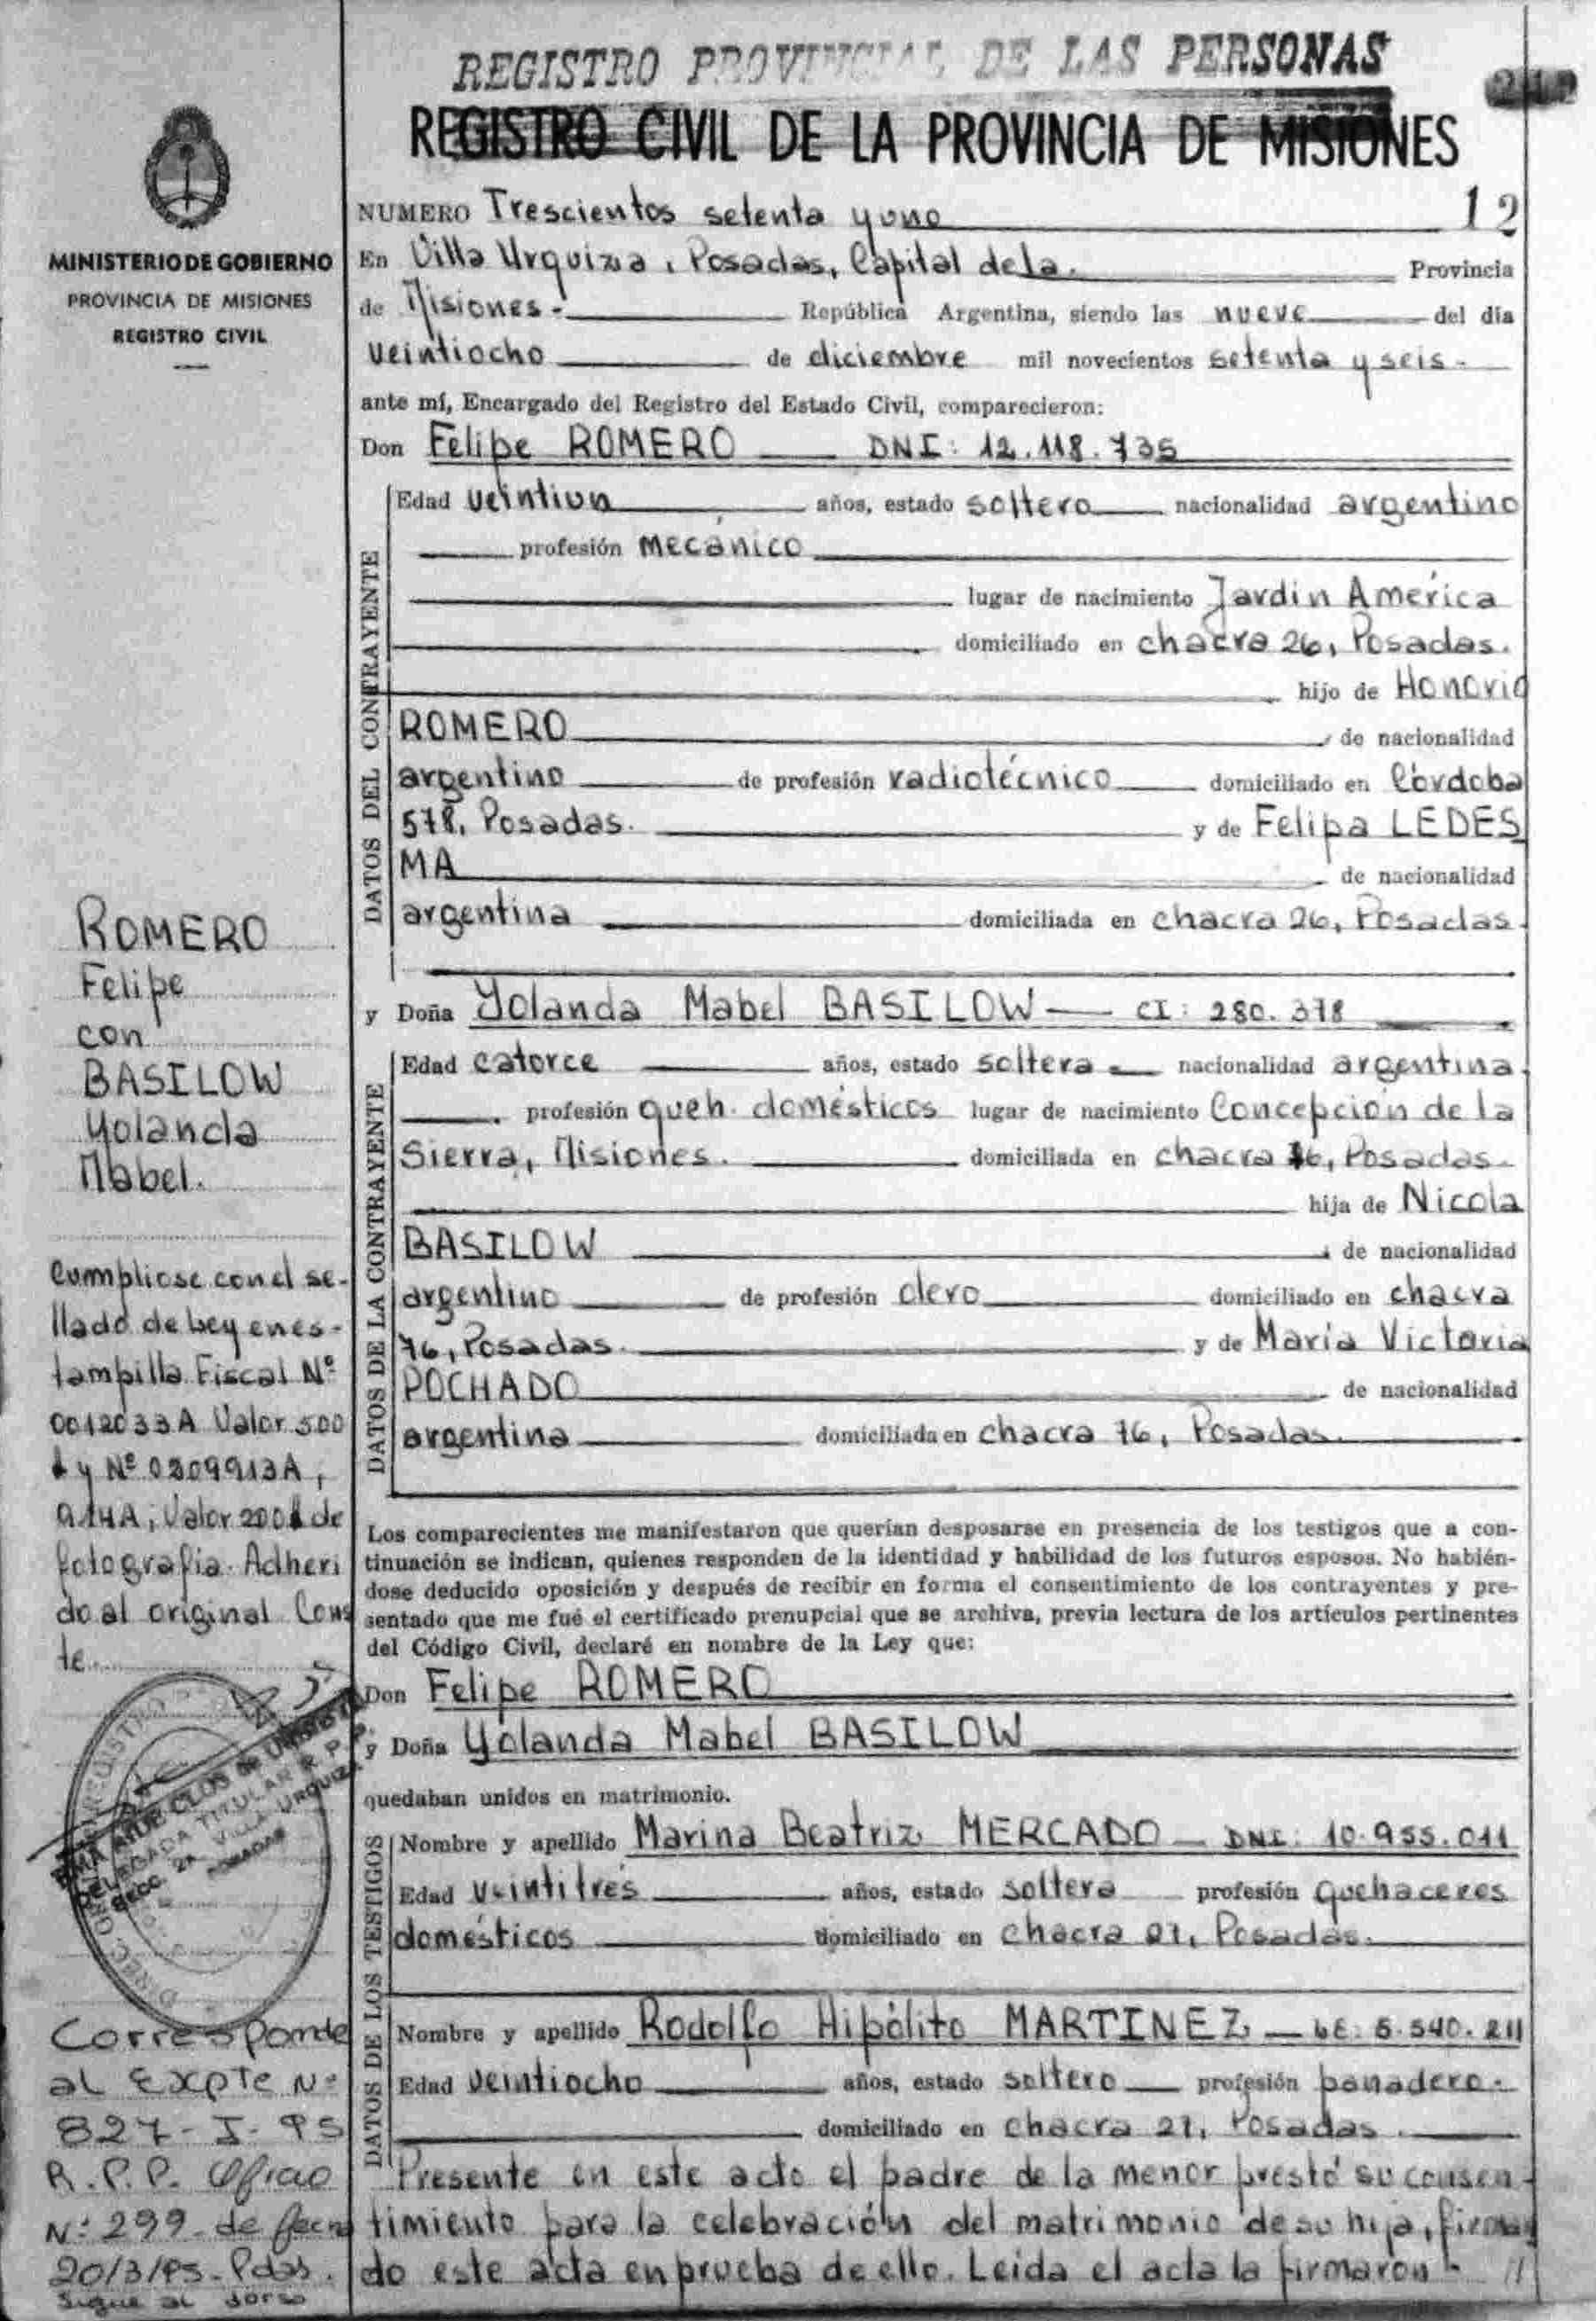 REGISTRO PROVINCIAL DE LAS PERSONAS
REGISTRO CIVIL DE LA PROVINCIA DE MISIONES
MINISTERIO DE GOBIERNO
PROVINCIA DE MISIONES
REGISTRO CIVIL
NUMERO Trescientos setenta y uno 12
En Villa Urquiza, Posadas, Capital de la. Provincia
de Misiones.- República Argentina, siendo las nueve del día
veintiocho de diciembre mil novecientos setenta y seis.-
ante mí, Encargado del Registro del Estado Civil, comparecieron:
Don Felipe ROMERO DNI: 12.118.735
DATOS DEL CONTRAYENTE
Edad veintiun años, estado soltero nacionalidad argentino
profesión mecánico
lugar de nacimiento Jardin América
domiciliado en chacra 26, Posadas.
hijo de Honorio
ROMERO de nacionalidad
argentino de profesión radiotécnico domiciliado en Córdoba
578, Posadas. y de Felipa LEDES
MA de nacionalidad
argentina domiciliada en chacra 26, Posadas.
y Doña Yolanda Mabel BASILOW CI: 280.378
DATOS DE LA CONTRAYENTE
Edad catorce años, estado soltera nacionalidad argentina
profesión queh. domésticos lugar de nacimiento Concepción de la
Sierra, Misiones. domiciliada en chacra 76, Posadas.
hija de Nicola
BASILOW de nacionalidad
argentino de profesión olero domiciliado en chacra
76, Posadas. y de María Victoria
POCHADO de nacionalidad
argentina domiciliada en chacra 76, Posadas.
Los comparecientes me manifestaron que querían desposarse en presencia de los testigos que a con-
tinuación se indican, quienes responden de la identidad y habilidad de los futuros esposos. No habién-
dose deducido oposición y después de recibir en forma el consentimiento de los contrayentes y pre-
sentado que me fué el certificado prenupcial que se archiva, previa lectura de los artículos pertinentes
del Código Civil, declaré en nombre de la Ley que:
Don Felipe ROMERO
y Doña Yolanda Mabel BASILOW
quedaban unidos en matrimonio.
DATOS DE LOS TESTIGOS
Nombre y apellido Marina Beatriz MERCADO DNI: 10.955.011
Edad veintitrés años, estado soltera profesión quehaceres
domésticos domiciliado en chacra 21, Posadas.
Nombre y apellido Rodolfo Hipólito MARTINEZ LE: 5.540.211
Edad veintiocho años, estado soltero profesión panadero.
domiciliado en chacra 21, Posadas.
Presente en este acto el padre de la menor prestó su consen-
timiento para la celebración del matrimonio de su hija, firman
do este acta en prueba de ello. Leída el acta la firmaron.- //
ROMERO
Felipe
con
BASILOW
Yolanda
Mabel.
Cumpliose con el se-
llado de Ley en es-
tampilla Fiscal Nº
0012033A Valor 500
y Nº 0209913A,
914A, Valor 200 de
fotografía. Adheri
do al original Cons
te.
DELEGADA TITULAR R.P.P.
SECC. 2A. VILLA URQUIZA
POSADAS
Corresponde
al Expte Nº
827-I-95
R.P.P. Oficio
Nº: 299 de fecha
20/3/95 - Pdas.
Sigue al dorso